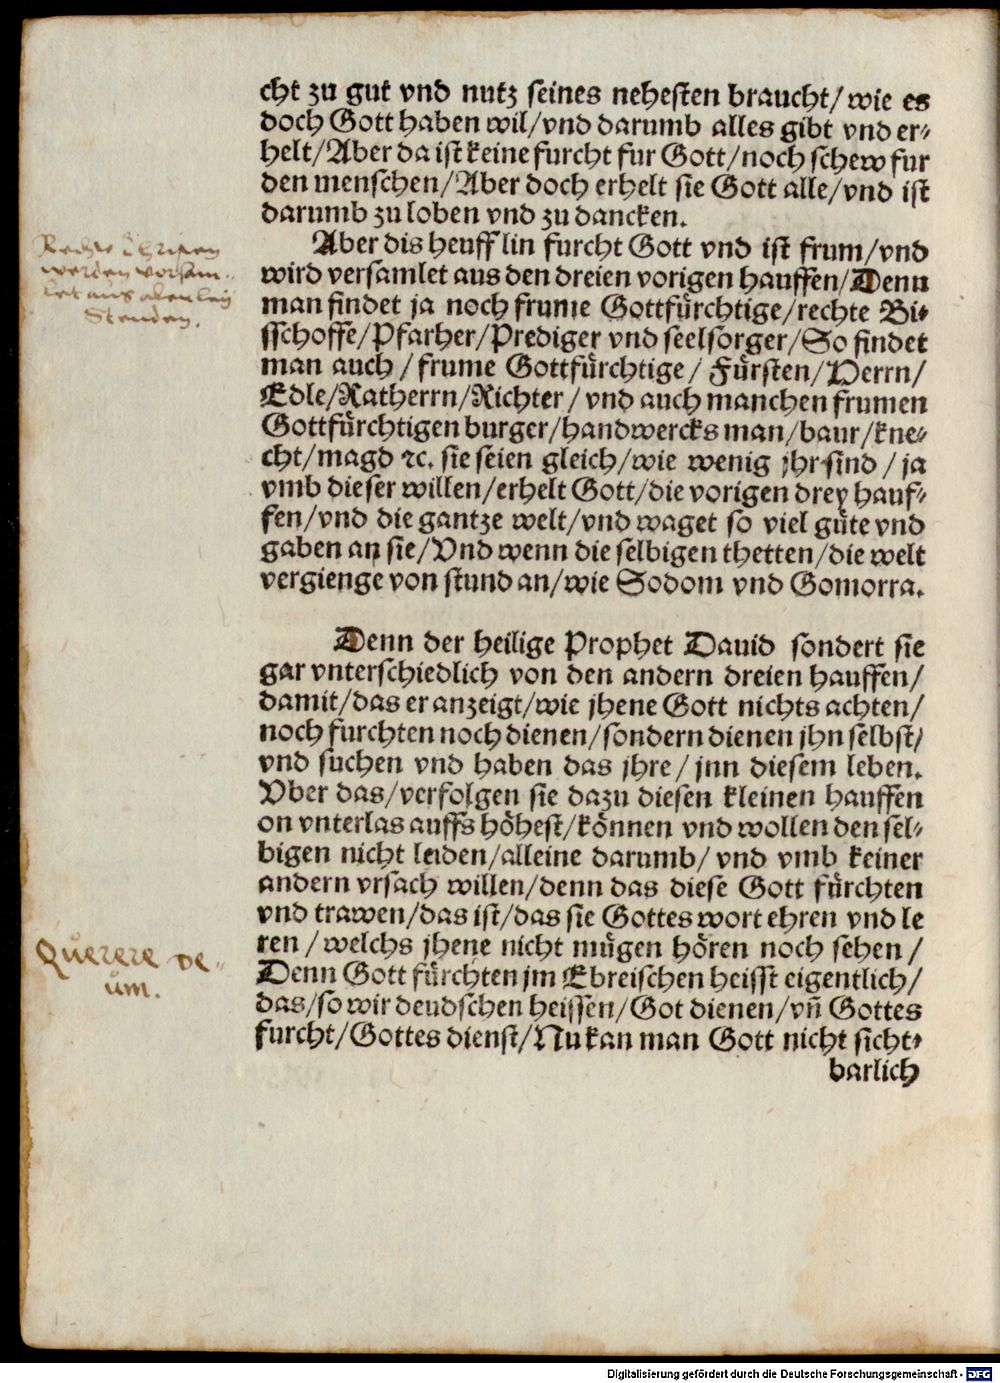 cht zu gut vnd nutz seines nehesten braucht/ wie es
doch Gott haben wil/ vnd darumb alles gibt vnd er-
helt/ Aber da ist keine furcht fur Gott/ noch schew fur
den menschen/ Aber doch erhelt sie Gott alle/ vnd ist
darumb zu loben vnd zu dancken.
Aber dis heufflin furcht Gott vnd ist frum/ vnd
wird versamlet aus den dreien vorigen hauffen/ Denn
man findet ja noch frume Gottfürchtige/ rechte Bi-
sschoffe/ Pfarher/ Prediger vnd seelsorger/ So findet
man auch/ frume Gottfürchtige/ Fürsten/ Herrn/
Edle/ Ratherrn/ Richter/ vnd auch manchen frumen
Gottfürchtigen burger/ handwercks man/ baur/ kne-
cht/ magd ꝛc. sie seien gleich/ wie wenig jhr sind/ ja
vmb dieser willen/ erhelt Gott/ die vorigen drey hauf-
fen/ vnd die gantze welt/ vnd waget so viel güte vnd
gaben an sie/ Vnd wenn die selbigen thetten/ die welt
vergienge von stund an/ wie Sodom vnd Gomorra.
Denn der heilige Prophet Dauid sondert sie
gar vnterschiedlich von den andern dreien hauffen/
damit/ das er anzeigt/ wie jhene Gott nichts achten/
noch furchten noch dienen/ sondern dienen jhn selbst/
vnd suchen vnd haben das jhre/ jnn diesem leben.
Vber das/ verfolgen sie dazu diesen kleinen hauffen
on vnterlas auffs höhest/ können vnd wollen den sel-
bigen nicht leiden/ alleine darumb/ vnd vmb keiner
andern vrsach willen/ denn das diese Gott fürchten
vnd trawen/ das ist/ das sie Gottes wort ehren vnd le
ren/ welchs jhene nicht mügen hören noch sehen/
Denn Gott fürchten jm Ebreischen heisst eigentlich/
das/ so wir deudschen heissen/ Got dienen/ vn̄ Gottes
furcht/ Gottes dienst/ Nu kan man Gott nicht sicht-
barlich
Rechte Christen
werden versam-
let aus allen ley
Stenden.
Querere De-
um.
Digitalisierung gefördert durch die Deutsche Forschungsgemeinschaft - DFG